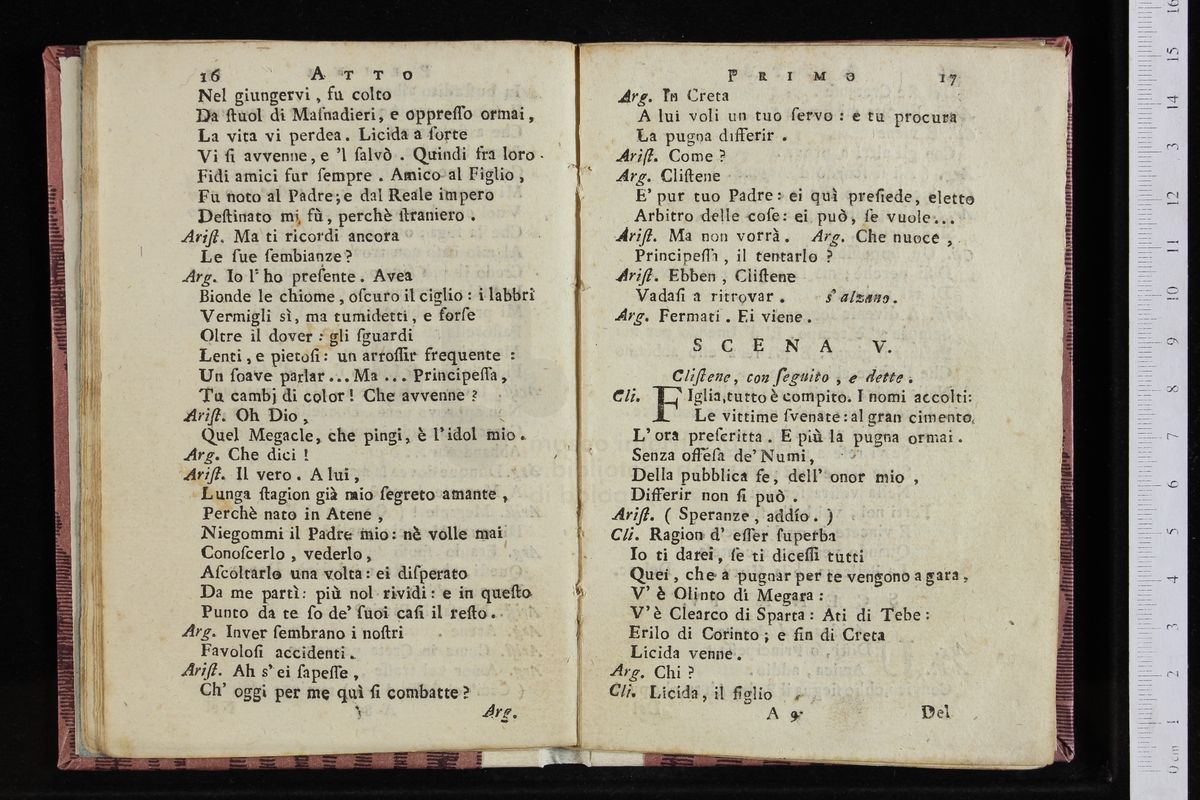 16 ATTO
Nel giungervi , fu colto
Da ſtuol di Maſnadieri, e oppreſſo ormai,
La vita vi perdea. Licida a ſorte
Vi ſi avvenne, e 'l ſalvò . Quindi fra loro
Fidi amici fur ſempre . Amico al Figlio ,
Fu noto al Padre; e dal Reale impero
Deſtinato mi fù, perchè ſtraniero .
Ariſt. Ma ti ricordi ancora
Le ſue ſembianze?
Arg. Io l'ho preſente. Avea
Bionde le chiome, oſcuro il ciglio : i labbri
Vermigli sì, ma tumidetti, e forſe
Oltre il dover : gli ſguardi
Lenti, e pietoſi: un arroſſir frequente :
Un ſoave parlar ... Ma ... Principeſſa,
Tu cambj di color! Che avvenne ?
Ariſt. Oh Dio,
Quel Megacle, che pingi, è l'idol mio.
Arg. Che dici !
Ariſt. Il vero . A lui,
Lunga ſtagion già mio ſegreto amante ,
Perchè nato in Atene ,
Niegommi il Padre mio: nè volle mai
Conoſcerlo , vederlo ,
Aſcoltarlo una volta: ei diſperato
Da me partì: più nol rividi: e in queſto
Punto da te ſo de' ſuoi caſi il reſto.
Arg. Inver ſembrano i noſtri
Favoloſi accidenti.
Ariſt. Ah s' ei ſapeſſe ,
Ch' oggi per me quì ſi combatte?
Arg.
PRIMO 17
Arg. In Creta
A lui voli un tuo ſervo : e tu procura
La pugna differir .
Ariſt. Come ?
Arg. Cliſtene
E' pur tuo Padre: ei quì preſiede, eletto
Arbitro delle coſe: ei può, ſe vuole...
Ariſt. Ma non vorrà. Arg. Che nuoce ,
Principeſſa , il tentarlo ?
Ariſt. Ebben , Cliſtene
Vadaſi a ritrovar . s' alzano.
Arg. Fermati . Ei viene .
SCENA V.
Cliſtene, con ſeguito , e dette .
Cli. FIglia, tutto è compito. I nomi accolti:
Le vittime ſvenate: al gran cimento
L' ora preſcritta . E più la pugna ormai.
Senza offeſa de' Numi,
Della pubblica fe, dell' onor mio ,
Differir non ſi può .
Ariſt. ( Speranze, addio. )
Cli. Ragion d' eſſer ſuperba
Io ti darei, ſe ti diceſſi tutti
Quei, che a pugnar per te vengono a gara,
V' è Olinto di Megara :
V'è Clearco di Sparta: Ati di Tebe:
Erilo di Corinto; e fin di Creta
Licida venne.
Arg. Chi ?
Cli. Licida, il figlio
A 9 Del